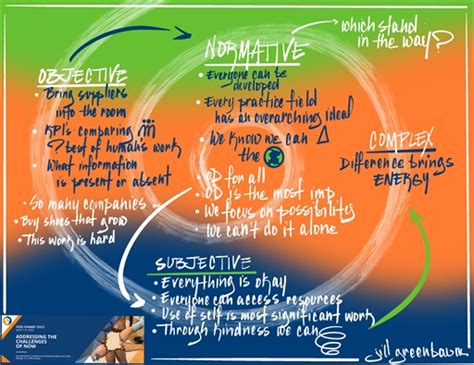 NORMATIVE
• Everyone can be
developed
• Every practice field
has an overarching ideal
• We know we can Δ
the
• OD for all
• OD is the most imp
• We focus on possibility
• We can't do it alone
which stand
in the way?
OBJECTIVE
• Bring suppliers
into the room
• KPI's comparing
? best of human's work
• What information
is present or absent
• So many companies ...
• Buy shoes that grow
• This work is hard
COMPLEX
Difference brings
ENERGY
SUBJECTIVE
• Everything is okay
• Everyone can access resources
• Use of self is most significant work
• Through kindness we can
jill greenbaum
ADDRESSING THE
CHALLENGES
OF NOW